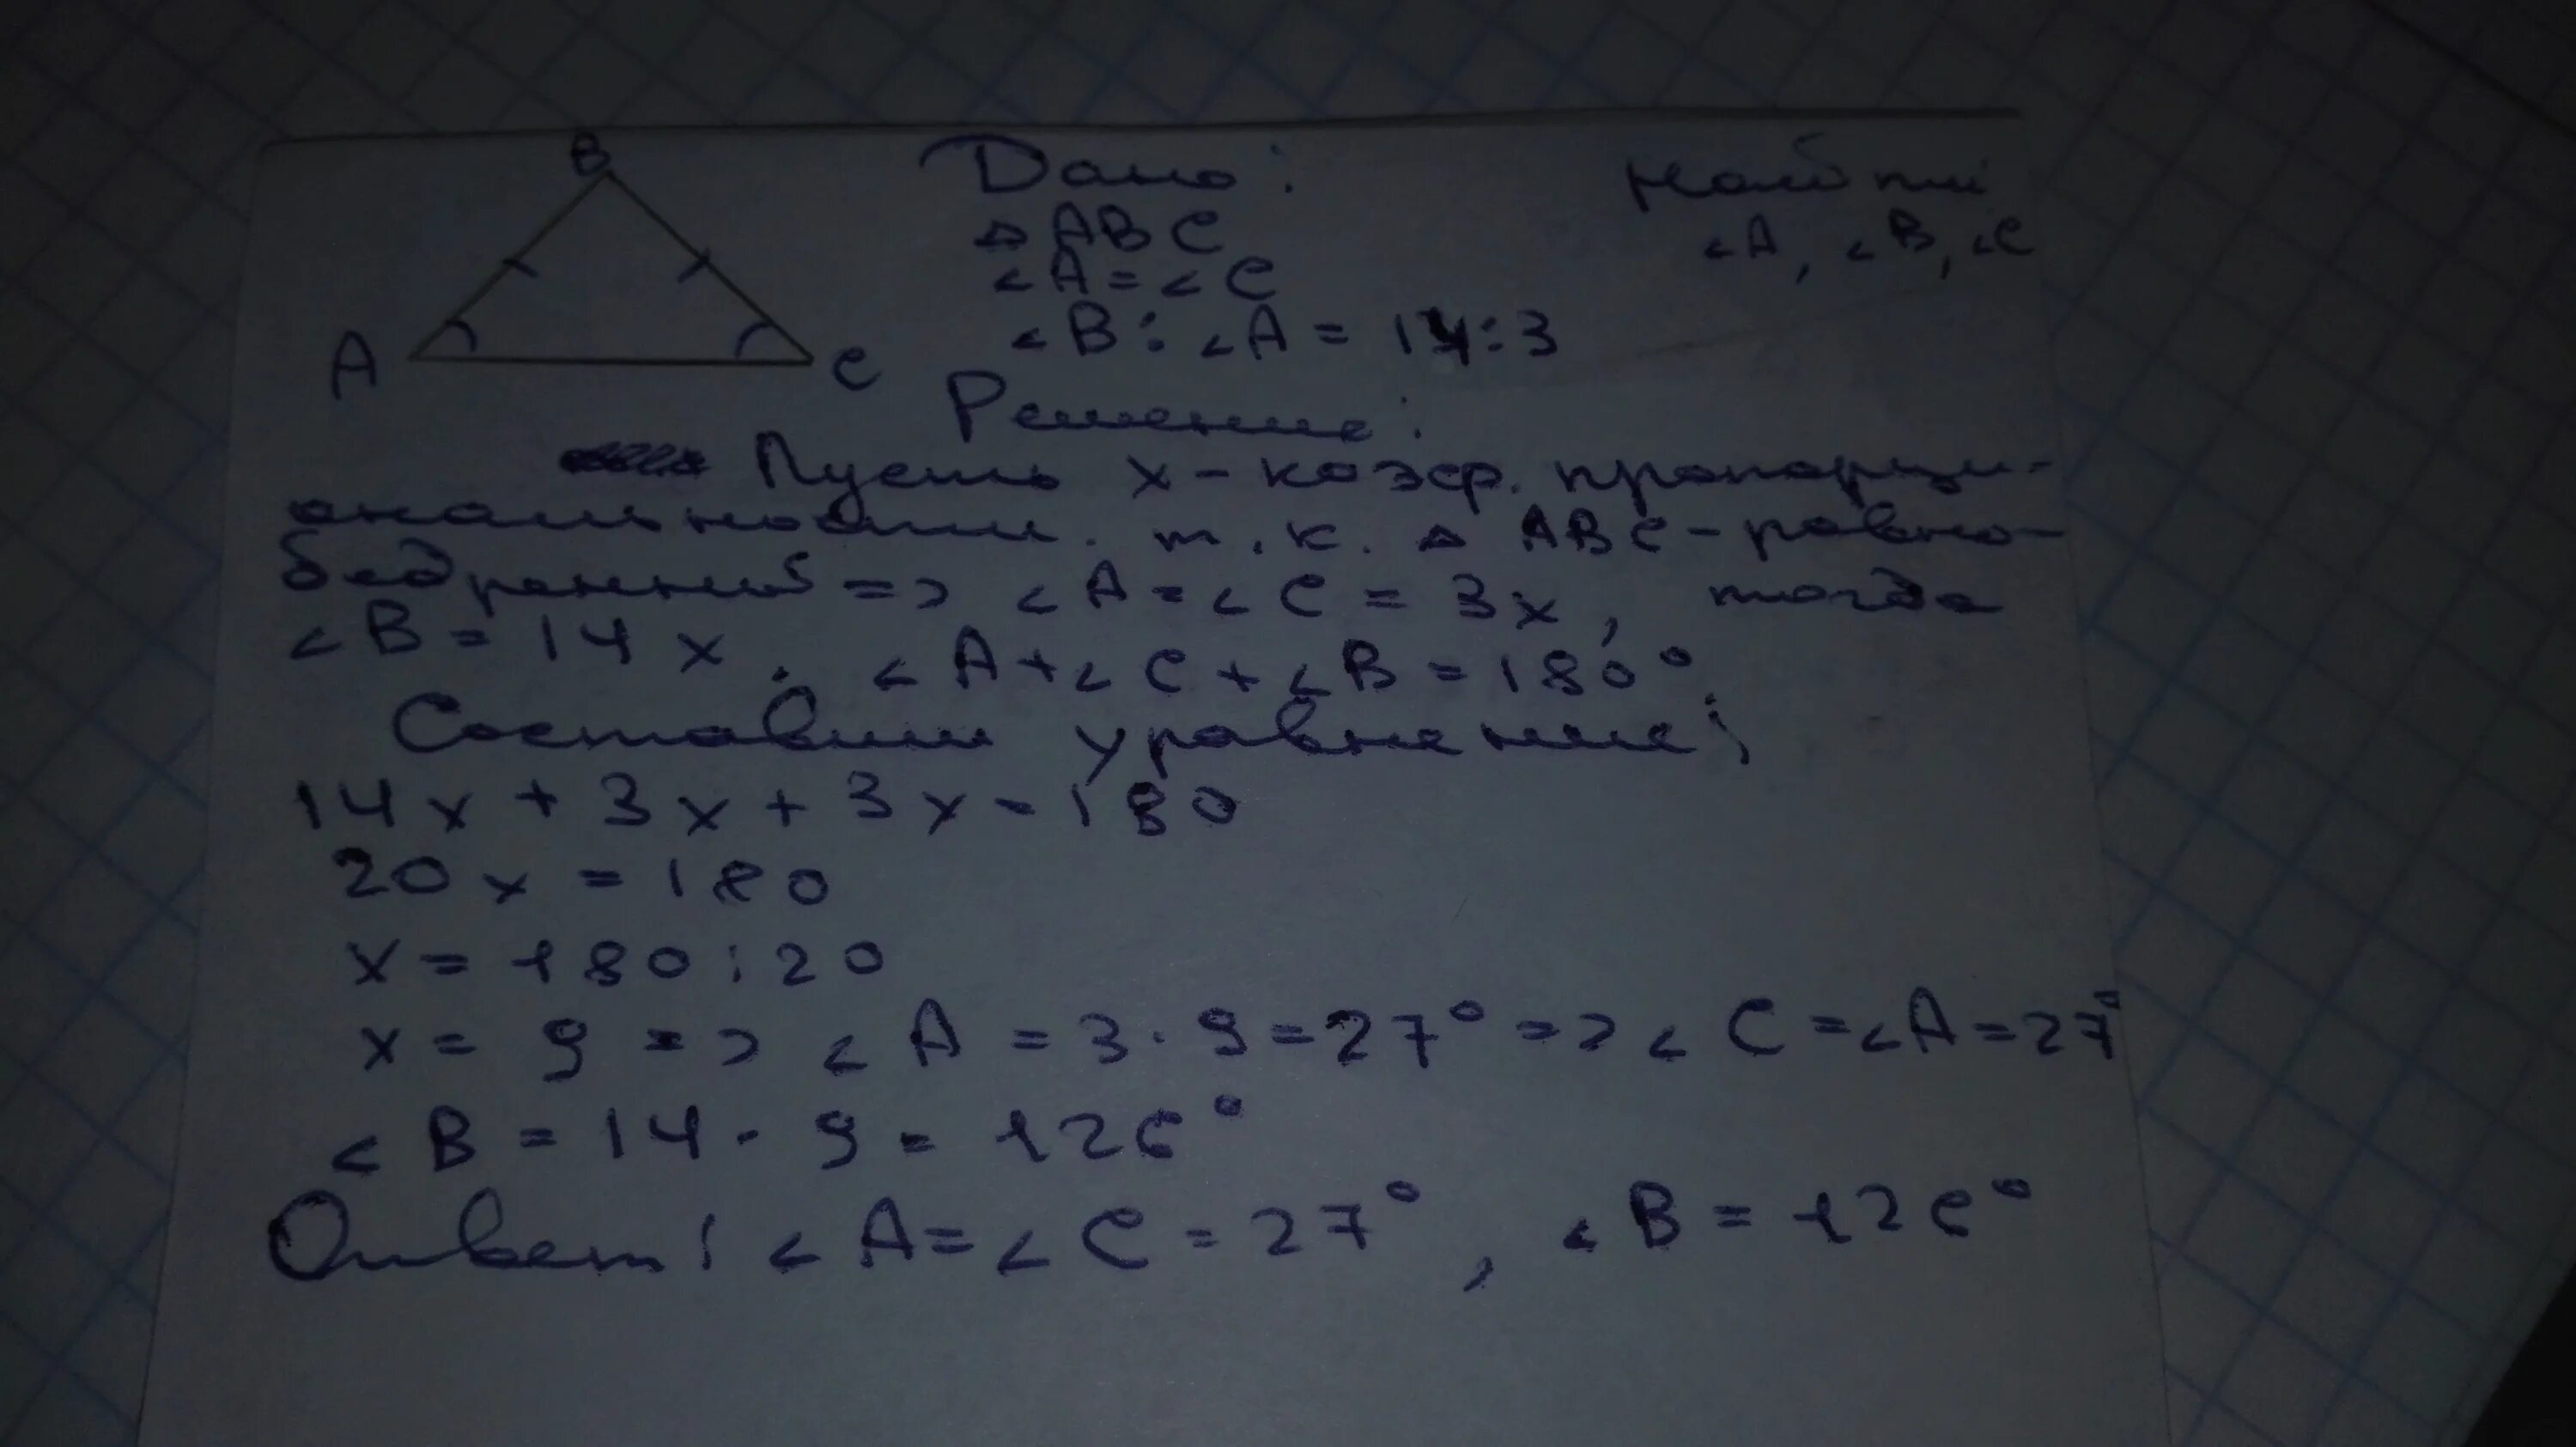 B
A
C
Дано:
△ABC
∠A=∠C
∠B:∠A=14:3
найти
∠A, ∠B, ∠C
Решение:
Пусть x-коэф. пропорци-
ональности. т.к. △ABC-равно-
бедренный => ∠A=∠C=3x, тогда
∠B=14x. ∠A+∠C+∠B=180°
Составим уравнение:
14x+3x+3x=180
20x=180
x=180:20
x=9 => ∠A=3·9=27° => ∠C=∠A=27°
∠B=14·9=126°
Ответ: ∠A=∠C=27°, ∠B=126°